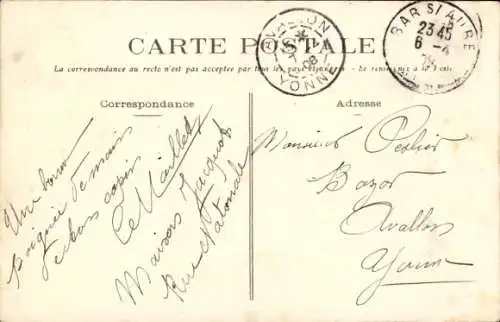 CARTE POSTALE
La correspondance au recto n'est pas acceptée par tous les pays étrangers. — Se renseigner à la Poste
Correspondance
Une bonne
poignée de mains
Le Maillet
Maison Jacquot
Rue Nationale
Adresse
Monsieur
Bazar
Avallon
Yonne
AVALLON
08
YONNE
BAR S/ AUBE
23 45
6 - 4